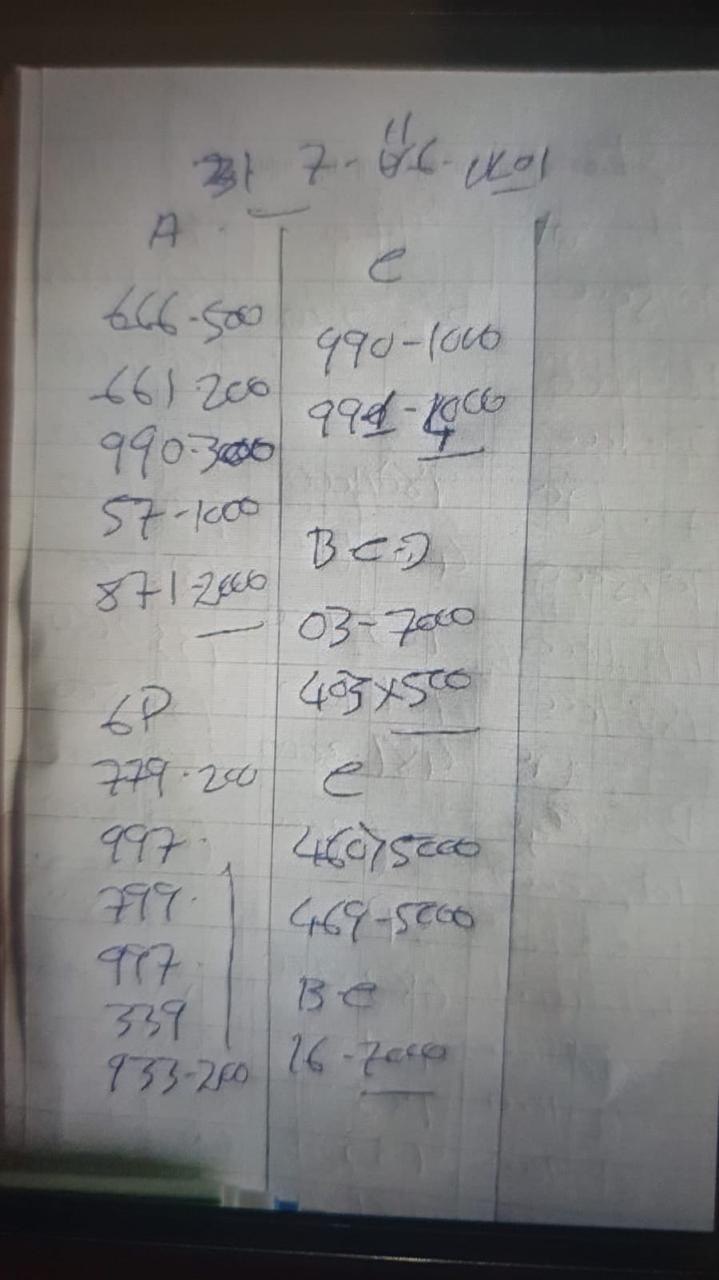 A
666-500
661-200
990-3000
57-1000
871-2000
6P
779-200
997
799
997
339
933-200
C
990-1000
991-1000
B C D
03-7000
403x500
C
460x5000
469-5000
B C
16-7000